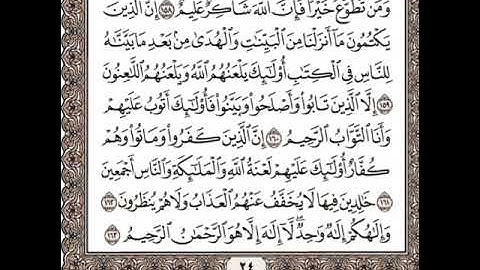 وَمَن تَطَوَّعَ خَيْرًا فَإِنَّ ٱللَّهَ شَاكِرٌ عَلِيمٌ ١٥٨ إِنَّ ٱلَّذِينَ
يَكْتُمُونَ مَآ أَنزَلْنَا مِنَ ٱلْبَيِّنَٰتِ وَٱلْهُدَىٰ مِنۢ بَعْدِ مَا بَيَّنَّٰهُ
لِلنَّاسِ فِى ٱلْكِتَٰبِ أُو۟لَٰٓئِكَ يَلْعَنُهُمُ ٱللَّهُ وَيَلْعَنُهُمُ ٱللَّٰعِنُونَ
١٥٩ إِلَّا ٱلَّذِينَ تَابُوا۟ وَأَصْلَحُوا۟ وَبَيَّنُوا۟ فَأُو۟لَٰٓئِكَ أَتُوبُ عَلَيْهِمْ
وَأَنَا ٱلتَّوَّابُ ٱلرَّحِيمُ ١٦٠ إِنَّ ٱلَّذِينَ كَفَرُوا۟ وَمَاتُوا۟ وَهُمْ
كُفَّارٌ أُو۟لَٰٓئِكَ عَلَيْهِمْ لَعْنَةُ ٱللَّهِ وَٱلْمَلَٰٓئِكَةِ وَٱلنَّاسِ أَجْمَعِينَ
١٦١ خَٰلِدِينَ فِيهَا لَا يُخَفَّفُ عَنْهُمُ ٱلْعَذَابُ وَلَا هُمْ يُنظَرُونَ ١٦٢
وَإِلَٰهُكُمْ إِلَٰهٌ وَٰحِدٌ لَّآ إِلَٰهَ إِلَّا هُوَ ٱلرَّحْمَٰنُ ٱلرَّحِيمُ ١٦٣
٢٤